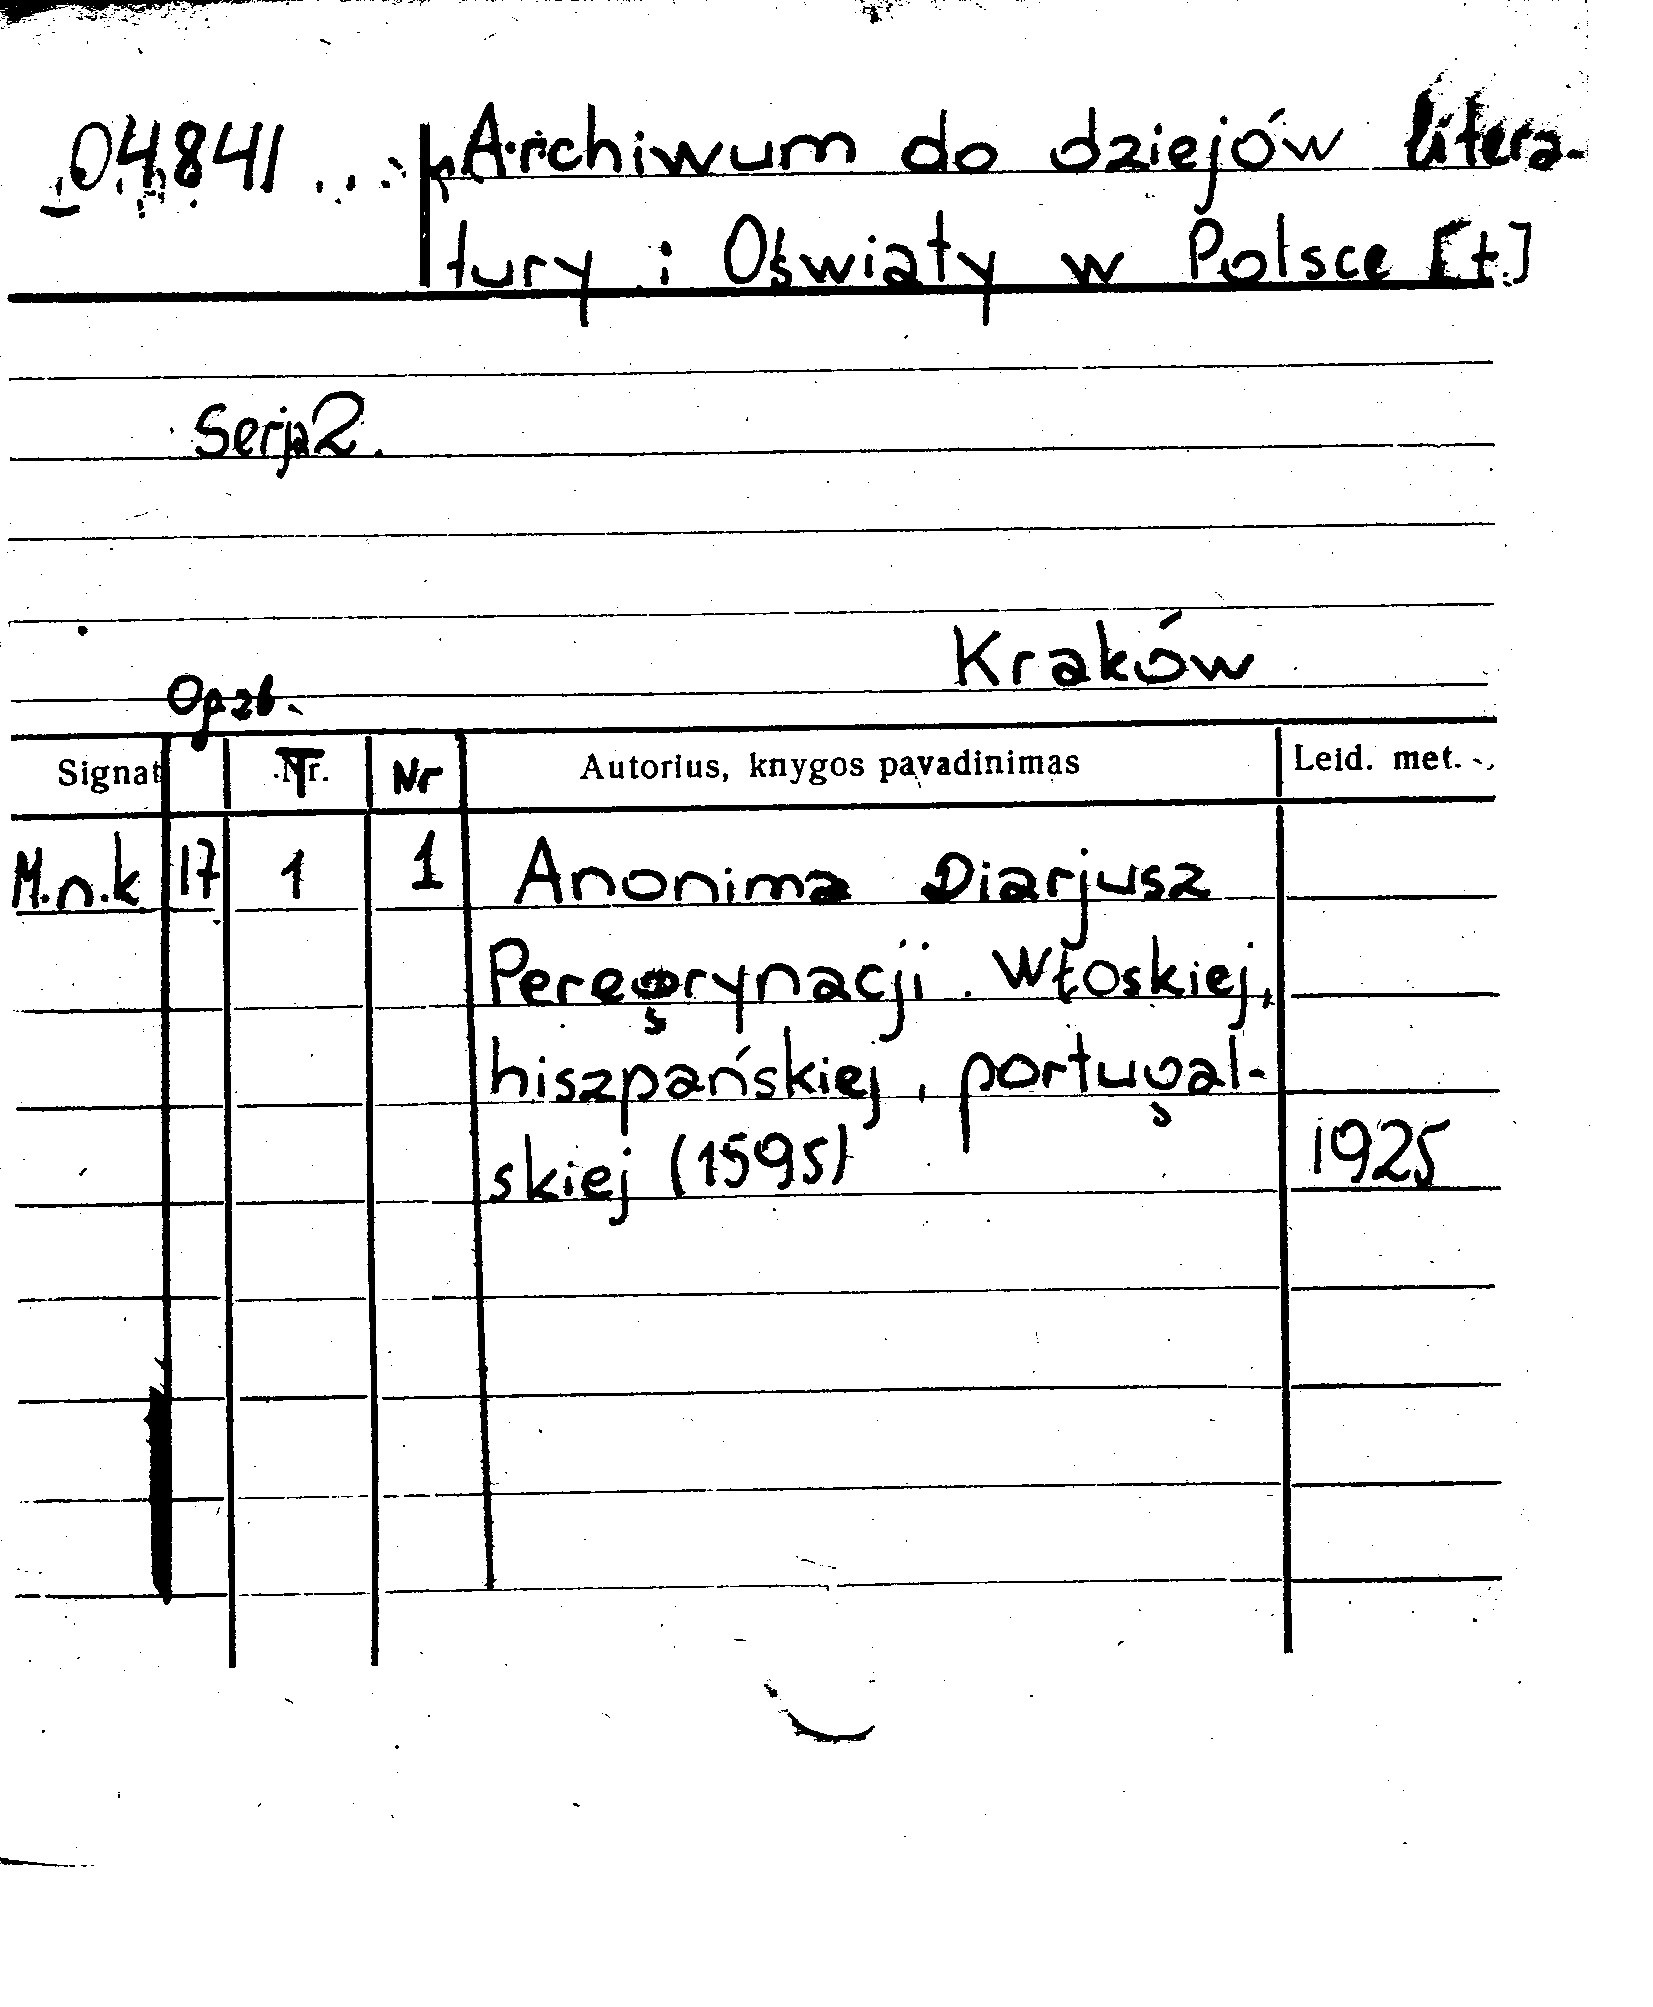 04841 Archiwum do dziejów litera-
tury i Oświaty w Polsce [t.]
Serja 2.
Kraków
Op. zb.
Signat T Nr Autorius, knygos pavadinimas Leid. met.
M.n.k 17 1 1 Anonima Diarjusz
Peregrynacji Włoskiej,
hiszpańskiej, portugal-
skiej (1595) 1925